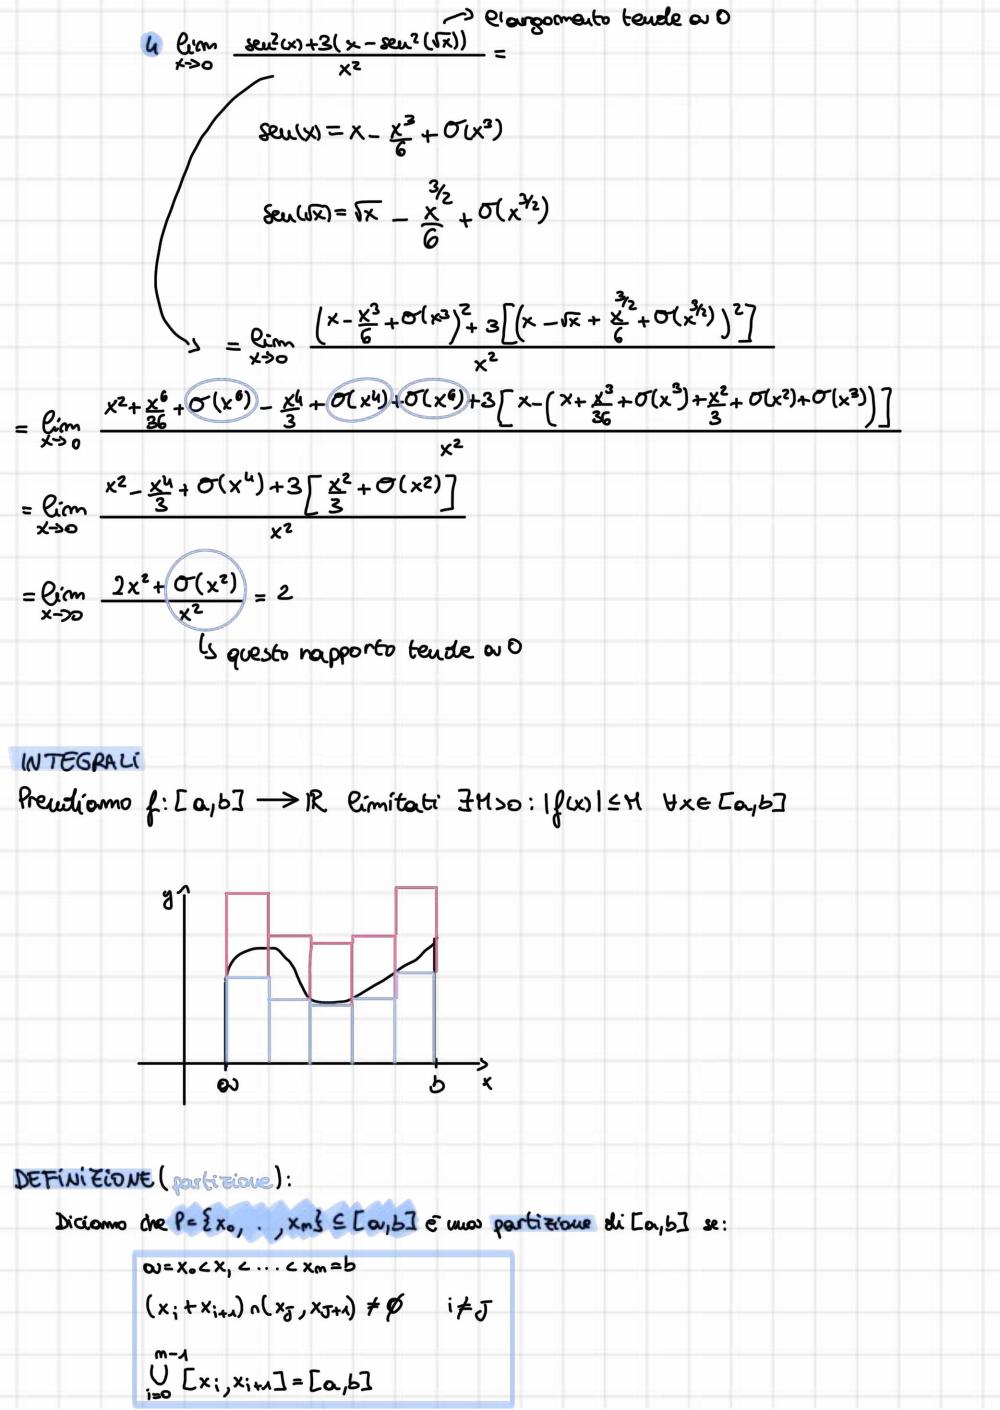 ↳ l'argomento tende a 0
4 lim x→0 (sen²(x)+3(x-sen²(√x)))/x² =
sen(x) = x - x³/6 + σ(x³)
sen(√x) = √x - x^(3/2)/6 + σ(x^(3/2))
= lim x→0 ((x - x³/6 + σ(x³))² + 3[(x - √x + x^(3/2)/6 + σ(x^(3/2)))²])/x²
= lim x→0 (x² + x⁶/36 + σ(x⁶) - x⁴/3 + σ(x⁴) + σ(x⁶) + 3[x - (x + x³/36 + σ(x³) + x²/3 + σ(x²) + σ(x³))])/x²
= lim x→0 (x² - x⁴/3 + σ(x⁴) + 3[x²/3 + σ(x²)])/x²
= lim x→0 (2x² + σ(x²))/x² = 2
↳ questo rapporto tende a 0
INTEGRALI
Prendiamo f: [a,b] → ℝ limitati ∃M>0: |f(x)| ≤ M ∀x ∈ [a,b]
y
a b x
DEFINIZIONE (partizione):
Diciamo che P = {x₀, . , xₘ} ⊆ [a,b] è una partizione di [a,b] se:
a = x₀ < x₁ < ... < xₘ = b
(xᵢ + xᵢ₊₁) ∩ (x_J, x_J+1) ≠ ∅ i ≠ J
m-1 ∪ i=0 [xᵢ, xᵢ₊₁] = [a,b]